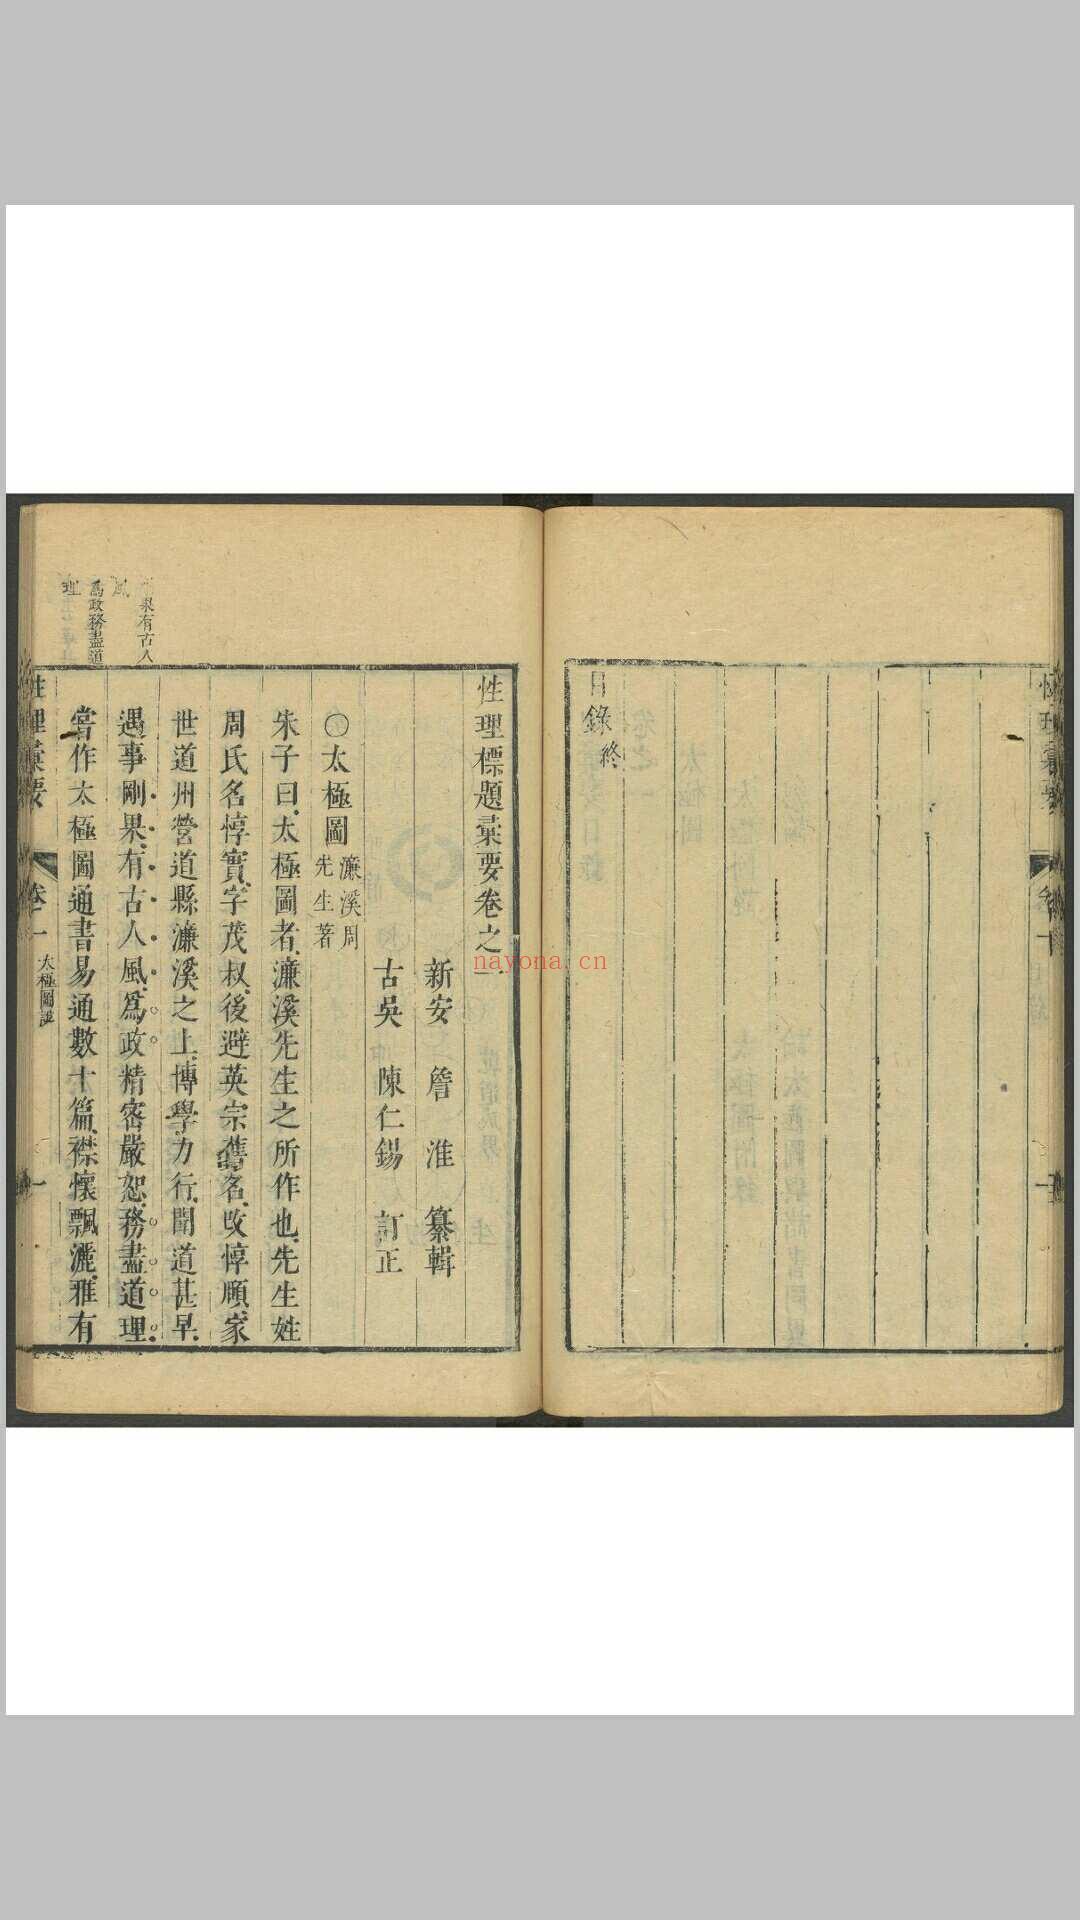 目錄終
性理標題彙要卷之一
新安 詹 淮 纂輯
古吳 陳仁錫 訂正
太極圖 濂溪周先生著
朱子曰太極圖者濂溪先生之所作也先生姓
周氏名惇實字茂叔後避英宗舊名改惇頤家
世道州營道縣濂溪之上博學力行聞道甚早
遇事剛果有古人風為政精密嚴恕務盡道理
嘗作太極圖通書易通數十篇襟懷飄灑雅有
果有古人
風
為政務盡道
理
性理彙要
卷一
太極圖說
一
nayona.cn